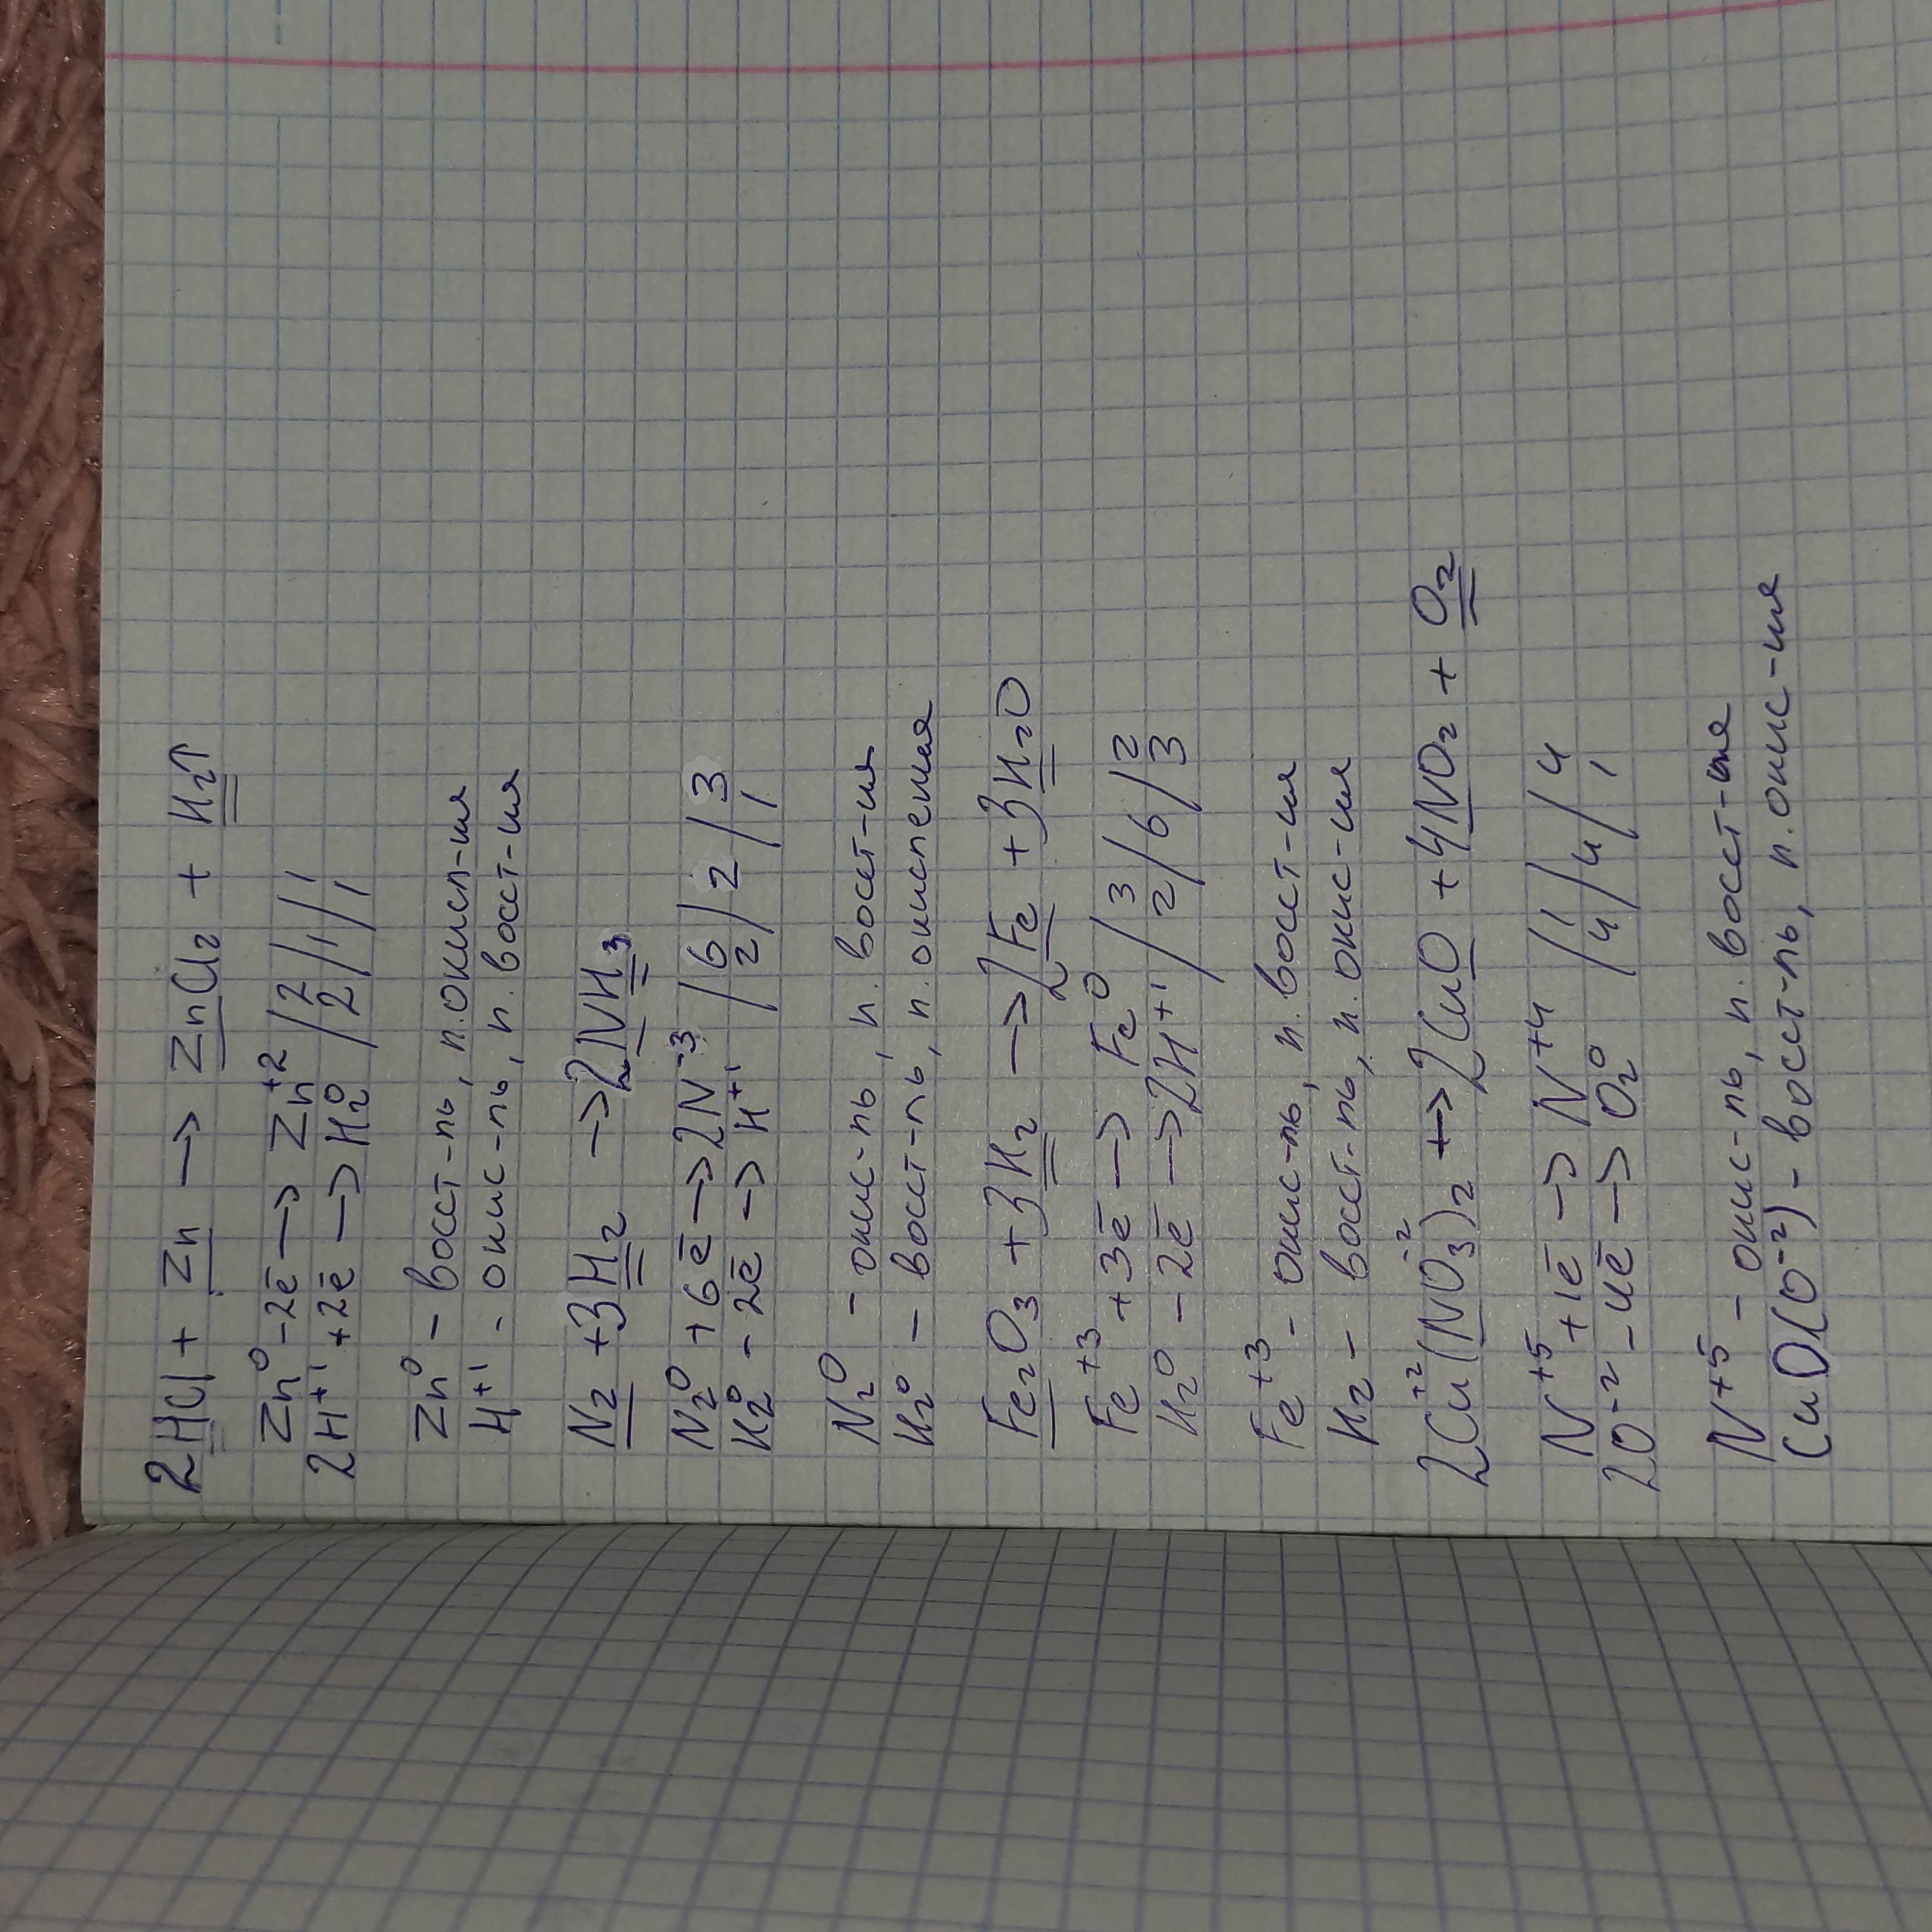 2HCl + Zn → ZnCl₂ + H₂↑
Zn⁰ -2ē → Zn⁺² /2/1/1
2H⁺¹ +2ē → H₂⁰ /2/1/1
Zn⁰ - восст-ль, п.окисл-ия
H⁺¹ - окис-ль, п. восст-ия
N₂ + 3H₂ → 2NH₃
N₂⁰ + 6ē → 2N⁻³ /6/2/3
H₂⁰ - 2ē → H⁺¹ /2/1
N₂⁰ - окис-ль, п. восст-ия
H₂⁰ - восст-ль, п. окисления
Fe₂O₃ + 3H₂ → 2Fe + 3H₂O
Fe⁺³ + 3ē → Fe⁰ /3/6/2
H₂⁰ - 2ē → 2H⁺¹ /2/6/3
Fe⁺³ - окис-ль, п. восст-ия
H₂ - восст-ль, п. окис-ия
2Cu⁺²(NO₃⁻²)₂ → 2CuO + 4NO₂ + O₂
N⁺⁵ + 1ē → N⁺⁴ /1/4/4
2O⁻² - 4ē → O₂⁰ /4/4/1
N⁺⁵ - окис-ль, п. восст-ия
CuO(O⁻²) - восст-ль, п. окис-ия